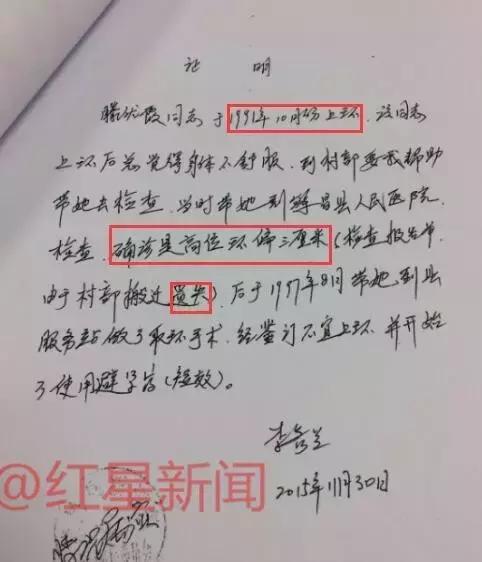 证 明
同志于1991年10月份上环,该同志
上环后总觉得身体不舒服,到村部要我帮助
带她去检查,当时带她到繁昌县人民医院
检查,确诊是高位环偏三厘米(检查报告单
由于村部搬迁遗失),后于1997年8月带她到县
服务站做了取环手术,经鉴订不宜上环,并开始
了使用避孕药(短效)。
2015年11月30日
@红星新闻